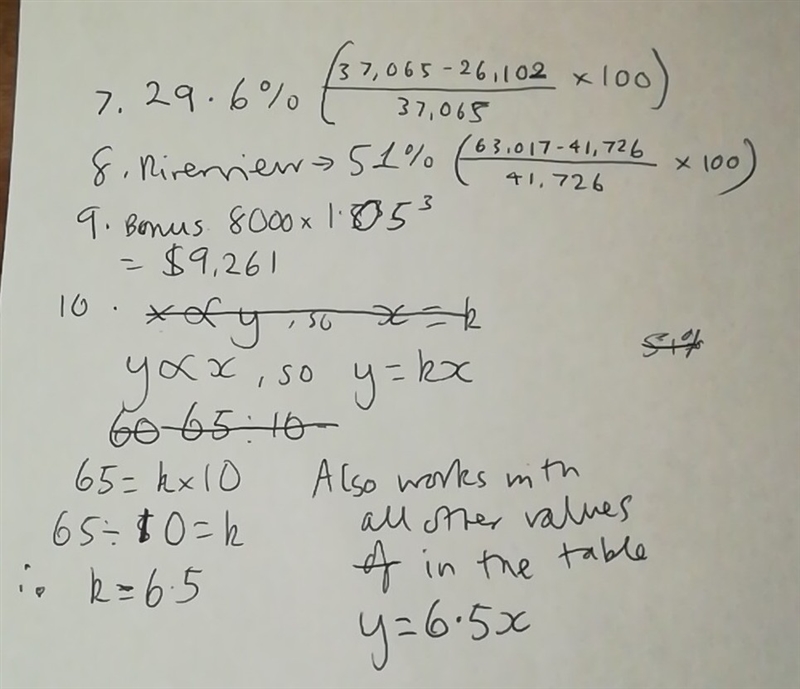 7. 29.6% (37,065 - 26,102 / 37,065 × 100)
8. Riverview → 51% (63,017 - 41,726 / 41,726 × 100)
9. Bonus 8000 × 1.05³
= $9,261
10. x ∝ y, so x = k
51%
y ∝ x, so y = kx
60 65 ÷ 10
65 = k × 10
65 ÷ 10 = k
∴ k = 6.5
Also works with
all other values
in the table
y = 6.5x